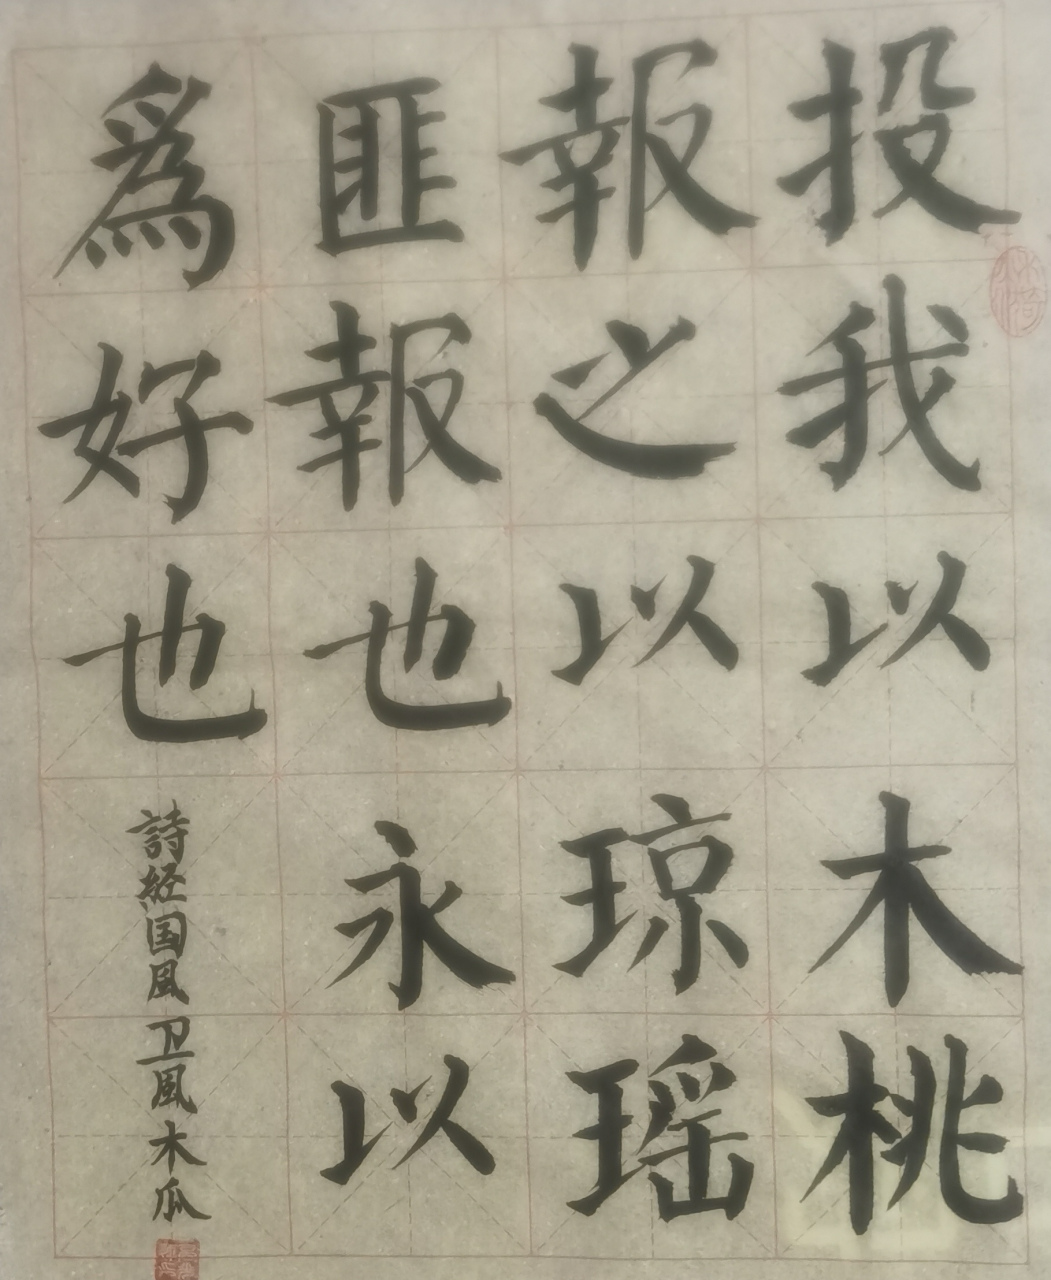 投我以木桃
報之以琼瑶
匪報也永以
爲好也
詩经国風卫風木瓜